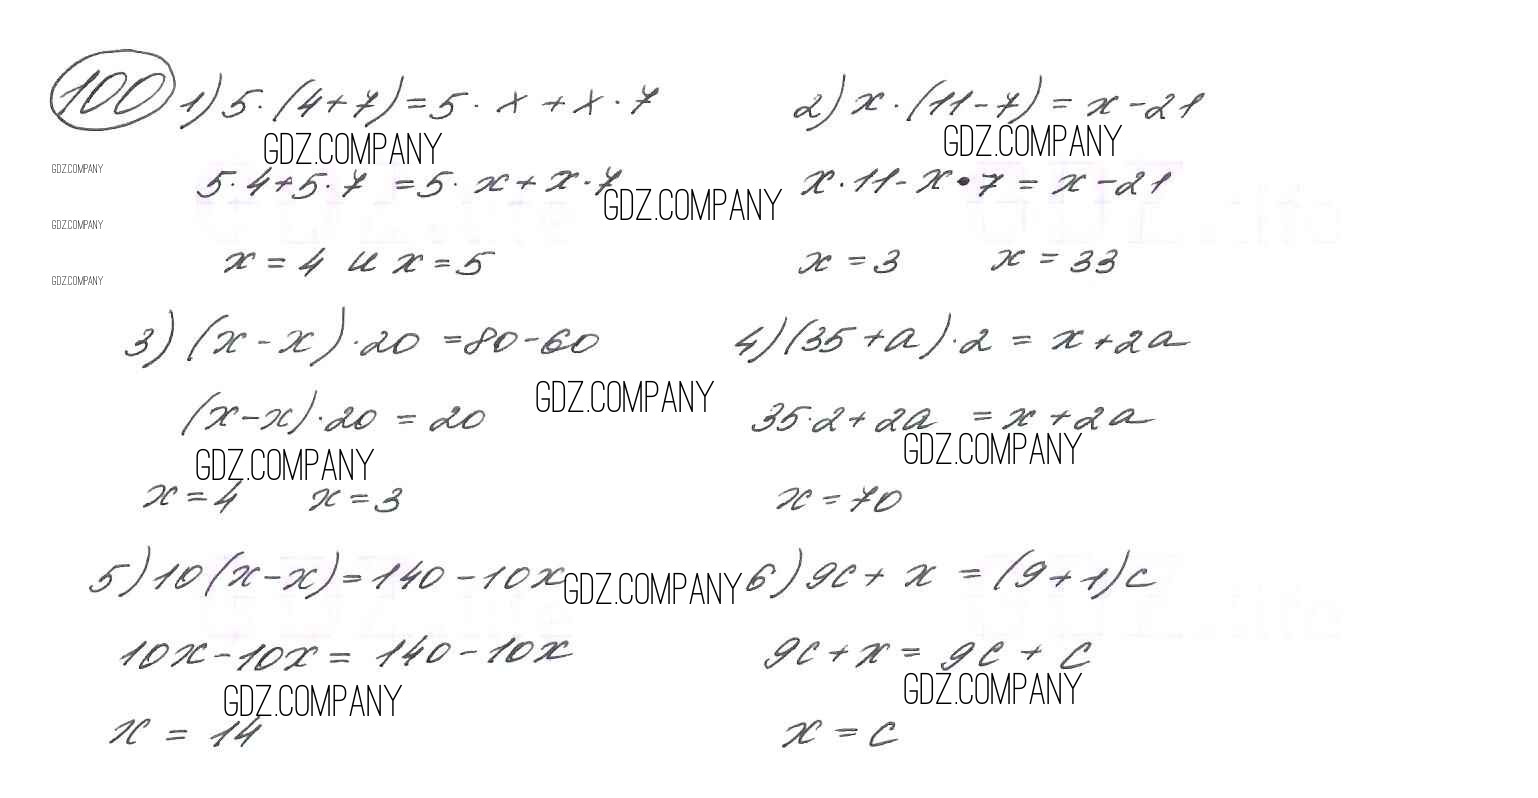 100 1) 5 · (4 + 7) = 5 · x + x · 7
2) x · (11 - 7) = x - 21
GDZ.COMPANY
GDZ.COMPANY
GDZ.COMPANY
5 · 4 + 5 · 7 = 5 · x + x · 7
GDZ.COMPANY
x · 11 - x • 7 = x - 21
GDZ.COMPANY
x = 4 и x = 5
x = 3 x = 33
GDZ.COMPANY
3) (x - x) · 20 = 80 - 60
4) (35 + a) · 2 = x + 2a
GDZ.COMPANY
(x - x) · 20 = 20
35 · 2 + 2a = x + 2a
GDZ.COMPANY
GDZ.COMPANY
x = 4 x = 3
x = 70
5) 10 (x - x) = 140 - 10x
GDZ.COMPANY
6) 9c + x = (9 + 1) c
10x - 10x = 140 - 10x
9c + x = 9c + c
GDZ.COMPANY
GDZ.COMPANY
x = 14
x = c